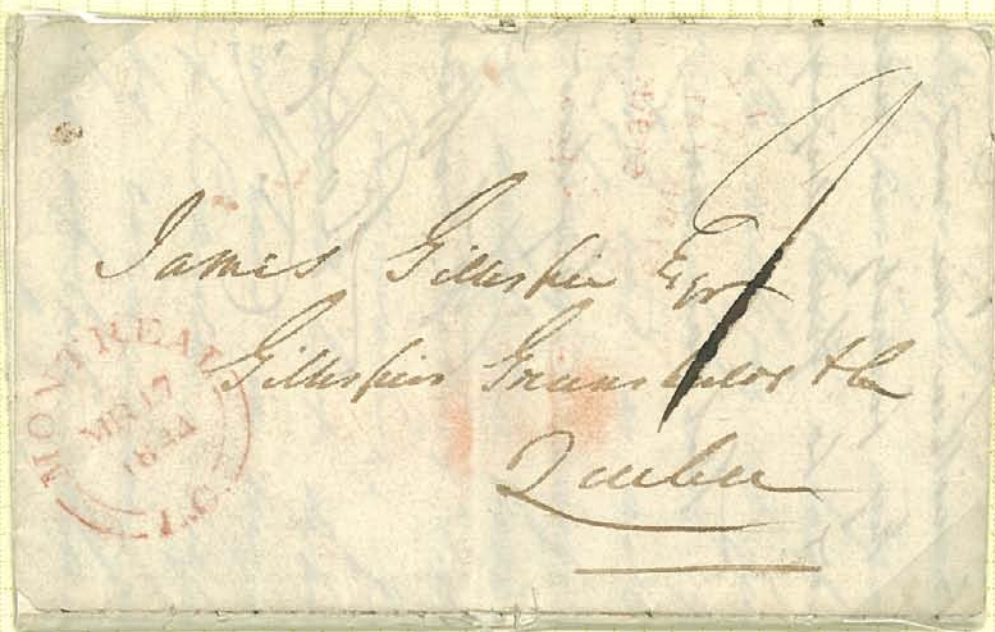 James Gillespie Esqr
Gillespies Greenshields & Co
Quebec
MONTREAL L.C.
MR 17
1844